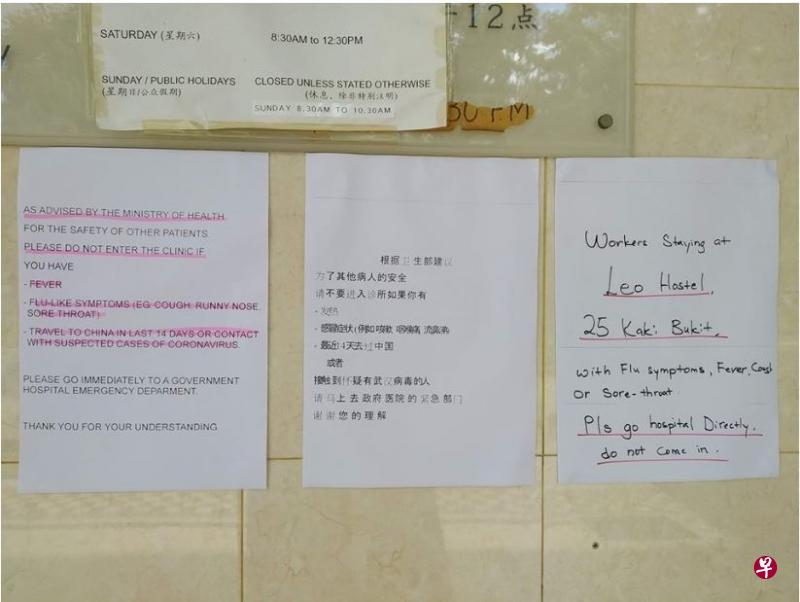 -12点
SATURDAY (星期六) 8:30AM to 12:30PM
SUNDAY / PUBLIC HOLIDAYS CLOSED UNLESS STATED OTHERWISE
(星期日/公众假期) (休息，除非特别注明)
SUNDAY 8.30AM TO 10.30AM
30 PM
AS ADVISED BY THE MINISTRY OF HEALTH
FOR THE SAFETY OF OTHER PATIENTS
PLEASE DO NOT ENTER THE CLINIC IF
YOU HAVE
- FEVER
- FLU-LIKE SYMPTOMS (EG: COUGH, RUNNY NOSE,
SORE THROAT)
- TRAVEL TO CHINA IN LAST 14 DAYS OR CONTACT
WITH SUSPECTED CASES OF CORONAVIRUS.
PLEASE GO IMMEDIATELY TO A GOVERNMENT
HOSPITAL EMERGENCY DEPARMENT.
THANK YOU FOR YOUR UNDERSTANDING
根据卫生部建议
为了其他病人的安全
请不要进入诊所如果你有
- 发热
- 感冒症状(例如 咳嗽, 咽喉痛, 流鼻涕)
- 最近14天去过中国
或者
接触到怀疑有武汉病毒的人
请马上去政府医院的紧急部门
谢谢您的理解
Workers Staying at
Leo Hostel,
25 Kaki Bukit,
with Flu symptoms, Fever,
or Sore-throat
Pls go hospital Directly.
do not come in.
早